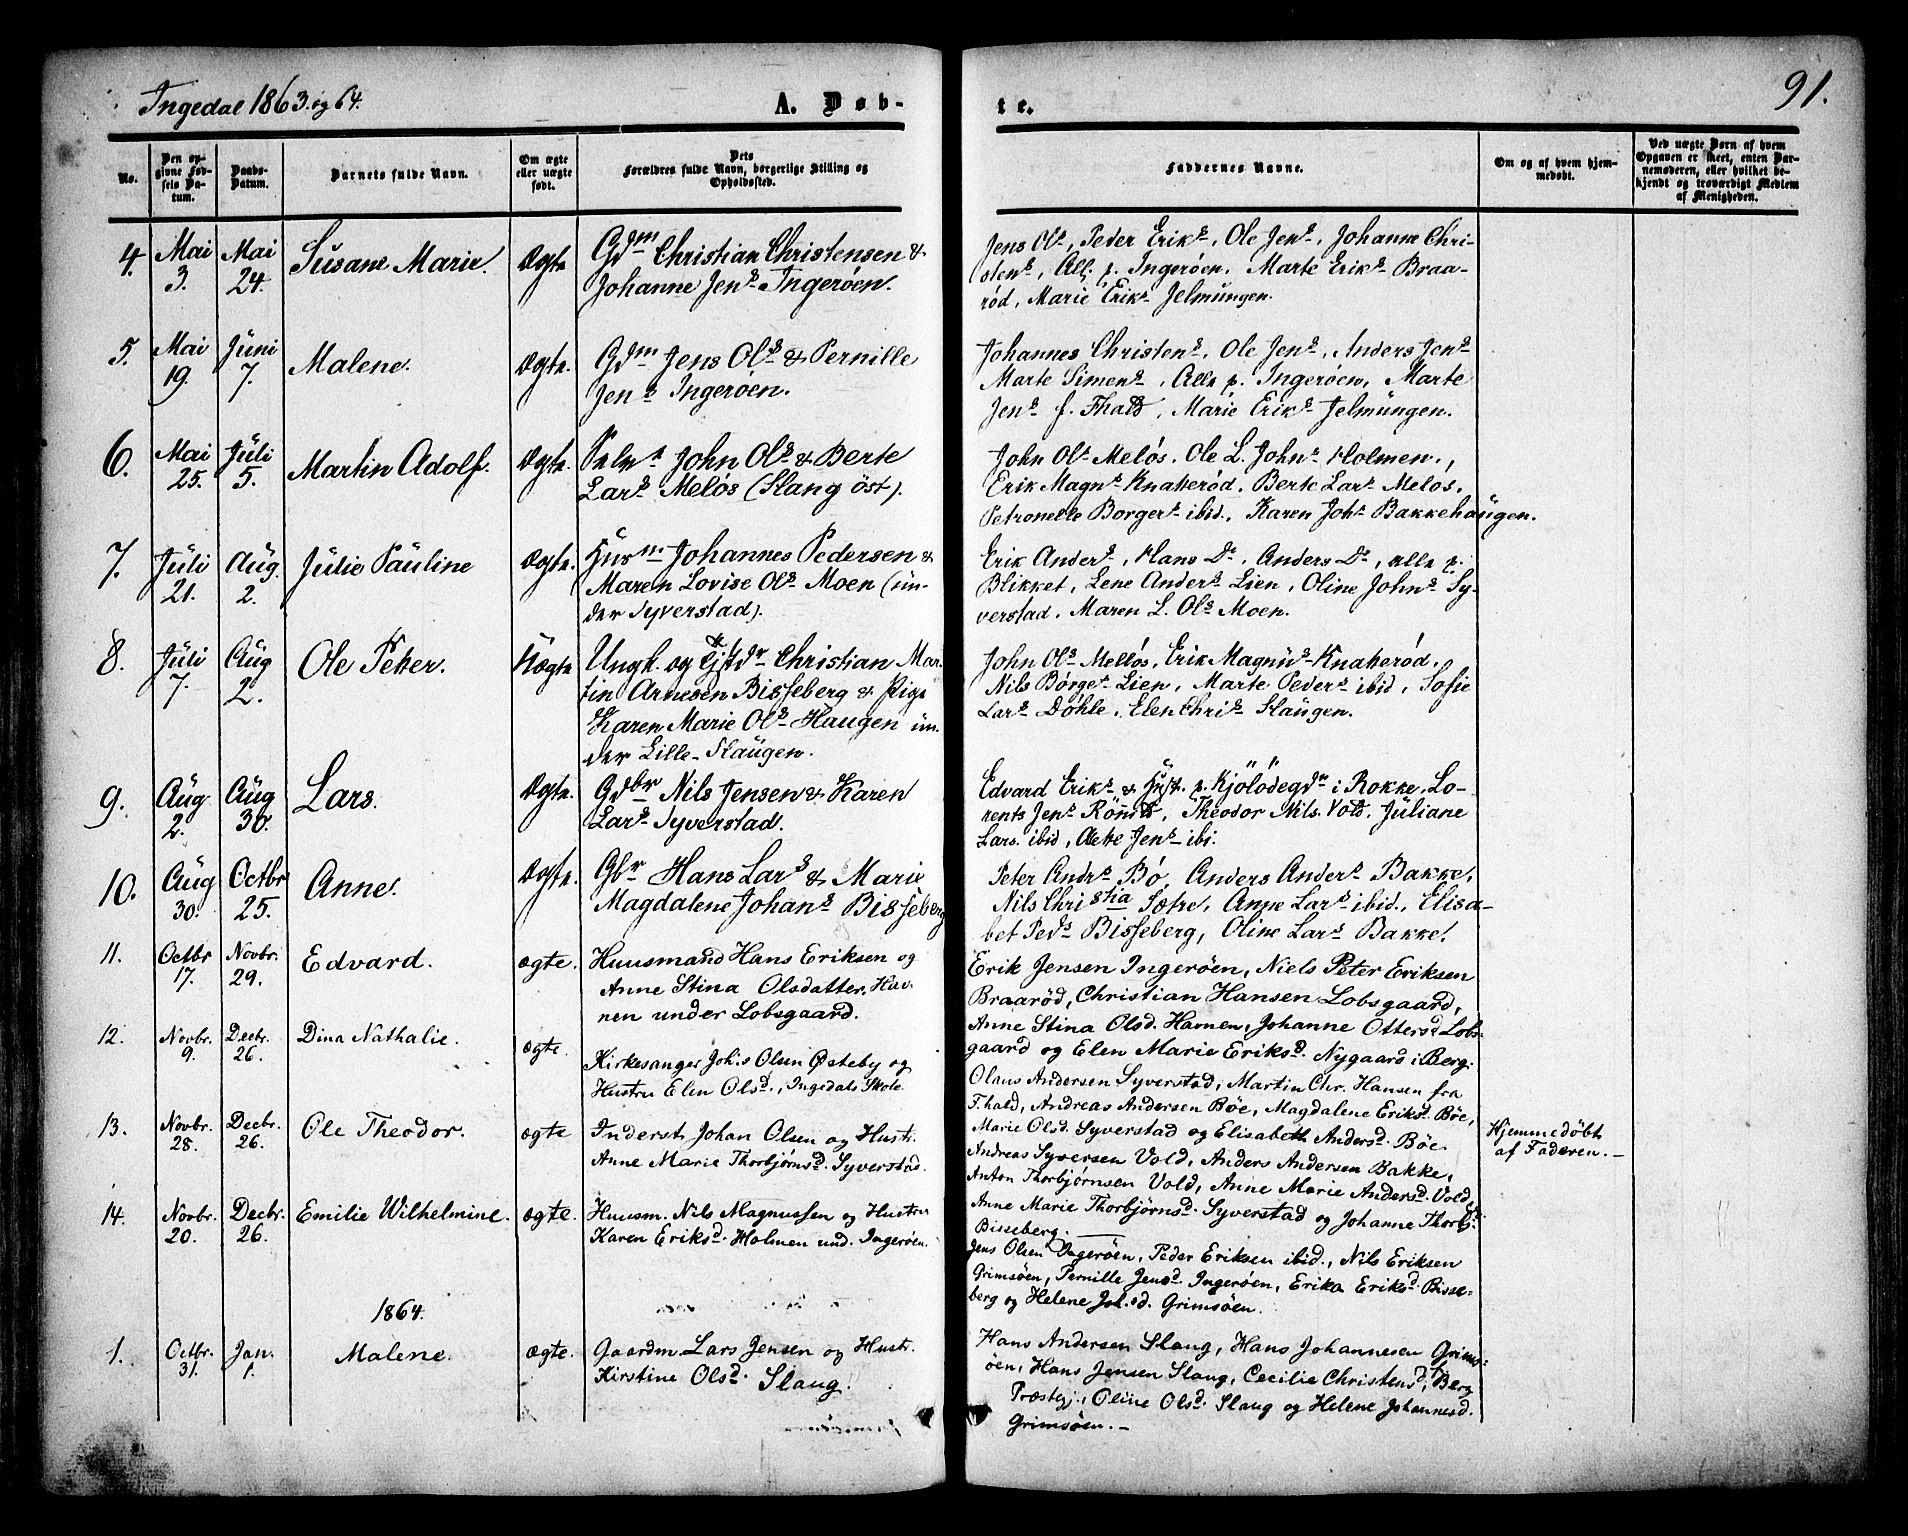 Ingedal 1863 og 64.
A. Døb-
te.
91.
No.
Den op-
givne Fød-
sels Da-
tum.
Daabs-
Datum.
Barnets fulde Navn.
Om ægte
eller uægte
født.
Dets
Forældres fulde Navn, borgerlige Stilling og
Opholdssted.
Faddernes Navne.
Om og af hvem hjem-
medøbt.
Ved uægte Børn af hvem
Opgaven er skeet, enten Bar-
nemoderen, eller hvilket be-
kjendt og troværdigt Medlem
af Menigheden.
4.
Mai
3.
Mai
24.
Susane Marie.
Ægte
Gdm Christian Christensen &
Johanne Jens Ingerøen.
Jens Ols, Peder Eriks, Ole Jens, Johanne Chri-
stens, Alle p. Ingerøen. Marte Eriks Braa-
rød, Marie Eriks Jelmungen.
5.
Mai
19.
Juni
7.
Malene.
Ægte.
Gdm Jens Ols & Pernille
Jens Ingerøen.
Johannes Christens, Ole Jens, Anders Jens
Marte Simens, Alle p. Ingerøen, Marte
Jens f. Fhald, Marie Eriks Jelmungen.
6.
Mai
25.
Juli
5.
Martin Adolf.
Ægte.
John Ols & Berte
Lars Melös (Slang öst).
John Ols Melös, Ole L. Johns Holmen.,
Erik Magns Knatterød, Berte Lars Melos.
Petronelle Borgers ibid., Karen Johs Bakkehaugen.
7.
Juli
21.
Aug.
2.
Julie Pauline
Ægte.
Husm Johannes Pedersen &
Maren Lovise Ols Moen (un-
der Syverstad).
Erik Anders, Hans Do, Anders Do, alle p.
Blikket, Lene Anders Lien, Oline Johns Sy-
verstad, Maren L. Ols Moen.
8.
Juli
7.
Aug
2.
Ole Petter.
Uægte
Ungk. og Tjstdr Christian Mar-
tin Arnesen Bisseberg & Pige
Karen Marie Ols Haugen un-
der Lille-Slaugen.
John Ols Mellös, Erik Magnus Knatterød.
Nils Börges Lien, Marte Peders ibid, Sofie
Lars Döhle, Elen Chris Slaugen.
9.
Aug
2.
Aug
30.
Lars.
Ægte.
Gdbr Nils Jensen & Karen
Lars Syverstad.
Edvard Eriks & Hust. p. Kjölödegdn i Rokke, Lo-
rents Jens Rönnes, Theodor Nils. Vold, Juliane
Lars. ibid, Aette Jens ibi.
10.
Aug
30.
Octbr
25.
Anne.
Ægte.
Gbr Hans Lars & Marie
Magdalene Johans Bisseberg
Peter Andrs Bö, Anders Anders Bakke,
Nils Christia Sætre, Anne Lars ibid., Elisa-
bet Peds Bisseberg, Oline Lars Bakke.
11.
Octbr
17.
Novbr.
29.
Edvard.
ægte.
Huusmand Hans Eriksen og
Anne Stina Olsdatter, Hav-
nen under Lobsgaard.
Erik Jensen Ingerøen, Niels Peter Eriksen
Braarød, Christian Hansen Lobsgaard,
Anne Stina Olsd. Havnen, Johanne Ottersd Lobs-
gaard og Elen Marie Eriksd. Nygaard i Berg.
12.
Novbr.
9.
Decbr.
26.
Dina Nathalie.
ægte.
Kirkesanger Johs Olsen Østeby og
Hustru Elen Olsd., Ingedals Skole.
Olaus Andersen Syverstad, Martin Chr. Hansen fra
F.hald, Andreas Andersen Bøe, Magdalene Eriksd. Bøe,
Marie Olsd. Syverstad og Elisabeth Andersd. Bøe
13.
Novbr.
28.
Decbr.
26.
Ole Theodor.
ægte
Inderst Johan Olsen og Hustr.
Anne Marie Thorbjørnsd. Syverstad.
Andreas Syversen Vold, Anders Andersen Bakke,
Anton Thorbjørnsen Vold, Anne Marie Andersd. Vold,
Anne Marie Thorbjørnsd. Syverstad og Johanne Thorbsd.
Bisseberg.
Hjemmedøbt
af Faderen.
14.
Novbr.
20.
Decbr.
26.
Emilie Wilhelmine.
ægte.
Huusm. Nils Magnussen og Hustru
Karen Eriksd. Holmen und. Ingerøen.
Jens Olsen Ingerøen, Peder Eriksen ibid., Nils Eriksen
Grimsøen, Pernille Jensd. Ingerøen, Erika Eriksd. Bisse-
berg og Helene Joh.sd. Grimsøen.
1864.
1.
Octbr.
31.
Jan.
1.
Malene.
ægte.
Gaardm. Lars Jensen og Hustr.
Kirstine Olsd. Slaug.
Hans Andersen Slaug, Hans Johannesen Grims-
øen, Hans Jensen Slaug, Cecilie Christensd. Berg
Præstgj., Oline Olsd. Slaug og Helene Johannesd.
Grimsøen.